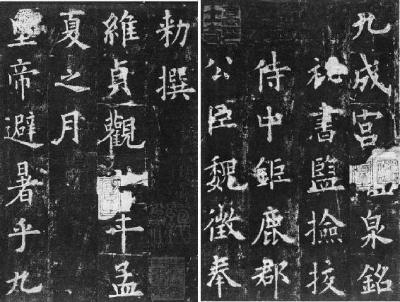 九成宮泉銘
秘書監撿挍
侍中鉅鹿郡
公臣魏徵奉
勅撰
維貞觀年孟
夏之月
皇帝避暑乎九